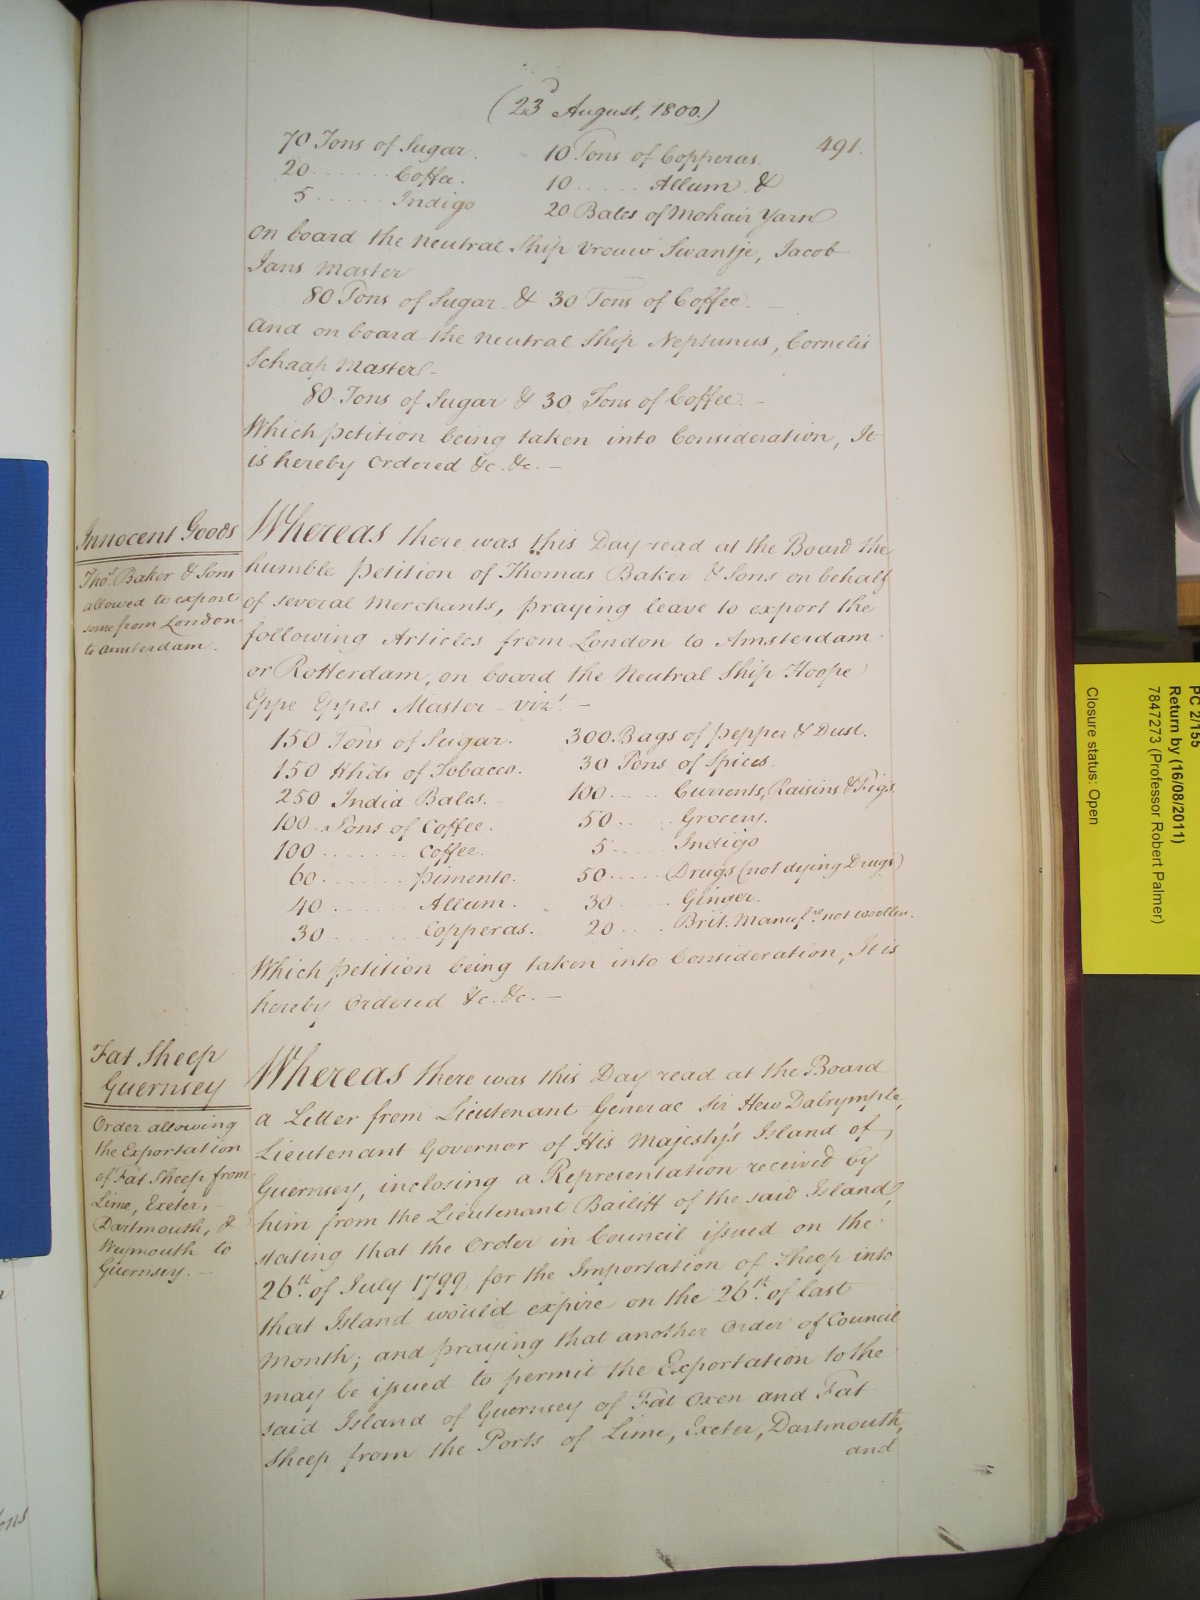 (23 August, 1800.)
491.
70 Tons of Sugar. 10 Tons of Copperas.
20 ...... Coffee. 10 ..... Allum &
5 ..... Indigo 20 Bales of Mohair Yarn
on board the Neutral Ship Vrouw Swantje, Jacob
Jans Master
80 Tons of Sugar & 30 Tons of Coffee. —
And on board the Neutral Ship Neptunus, Cornelis
Schaap Master -
80 Tons of Sugar & 30 Tons of Coffee. —
Which petition being taken into Consideration, It
is hereby Ordered &c. &c. —
Innocent Goods
Thos. Baker & Sons
allowed to export
some from London
to Amsterdam.
Whereas there was this Day read at the Board the
humble Petition of Thomas Baker & Sons on behalf
of several Merchants, praying leave to export the
following Articles from London to Amsterdam
or Rotterdam, on board the Neutral Ship Hoope
Eppe Eppes Master - vizt. —
150 Tons of Sugar. 300 Bags of pepper & Dust.
150 Hhds of Tobacco. 30 Tons of Spices.
250 India Bales. 100 .... Currents, Raisins & Figs.
100 .. Tons of Coffee. 50 .... Grocery.
100 ........ Coffee. 5 .... Indigo
60 ........ Pimento. 50 ..... Drugs (not dying Drugs)
40 ........ Allum. 30 .... Ginger.
30 ........ Copperas. 20 .... Brit. Manufre. not woollen.
Which petition being taken into Consideration, It is
hereby Ordered &c. &c. —
Fat Sheep
Guernsey
Order allowing
the Exportation
of Fat Sheep from
Lime, Exeter,
Dartmouth, &
Weymouth to
Guernsey. —
Whereas there was this Day read at the Board
a Letter from Lieutenant General Sir Hew Dalrymple,
Lieutenant Governor of His Majesty's Island of
Guernsey, inclosing a Representation received by
him from the Lieutenant Bailiff of the said Island,
stating that the Order in Council issued on the
26th. of July 1799, for the Importation of Sheep into
that Island would expire on the 26th. of last
Month; and praying that another Order of Council
may be issued to permit the Exportation to the
said Island of Guernsey of Fat Oxen and Fat
Sheep from the Ports of Lime, Exeter, Dartmouth,
and
PC 2/155
Return by (16/08/2011)
7847273 (Professor Robert Palmer)
Closure status: Open